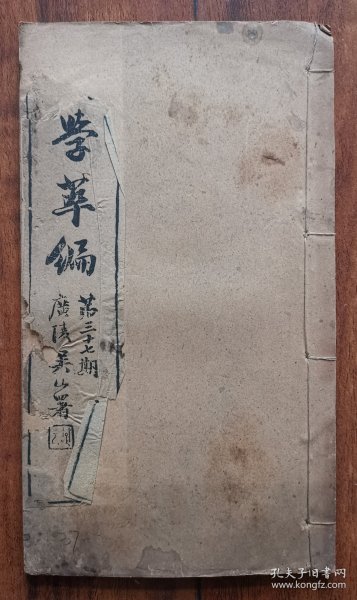 学萃編
第三十七期
廣陵吴山署
37
孔夫子旧书网
www.kongfz.com